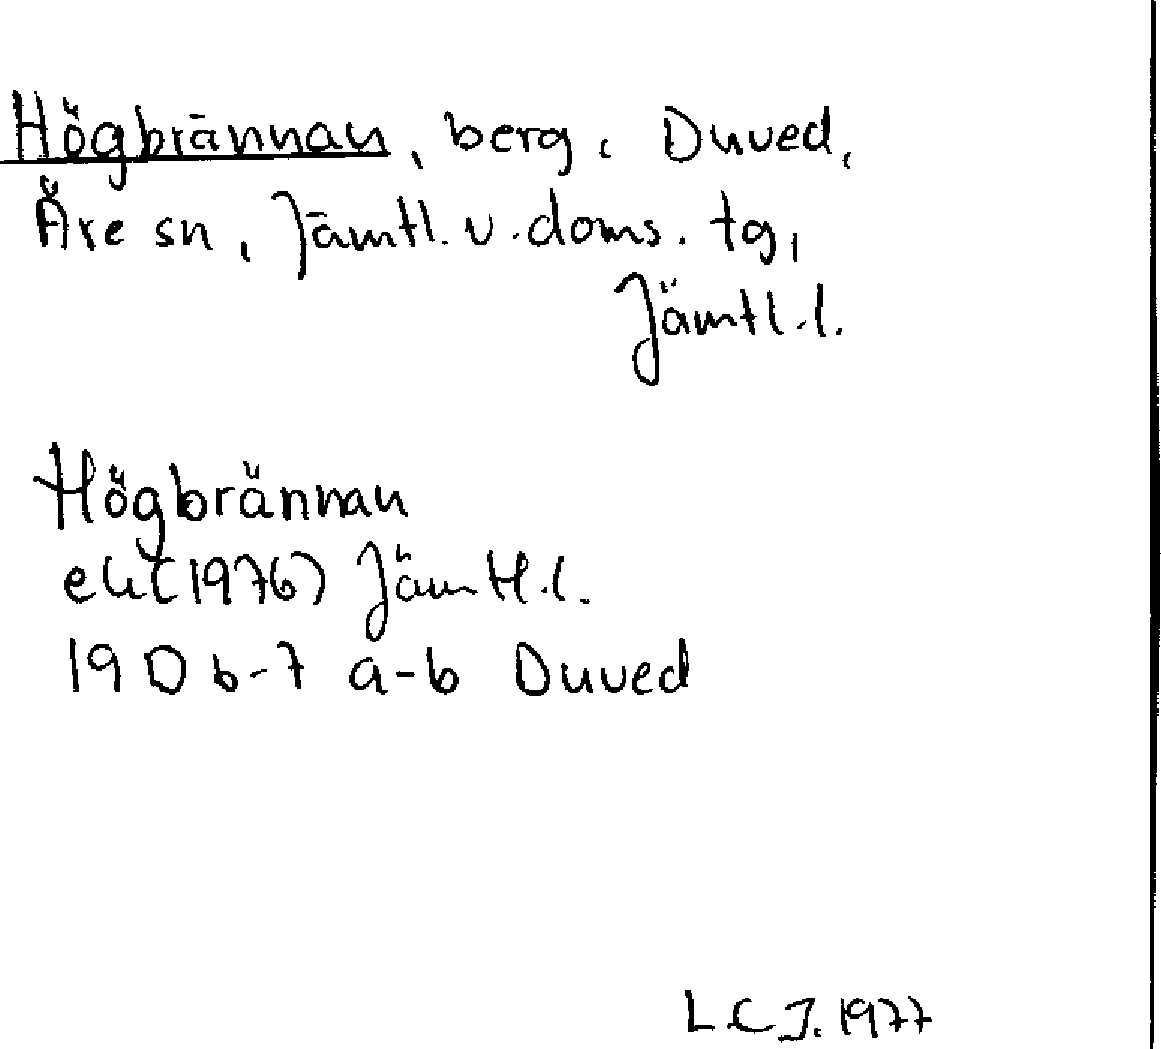 Högbrännan, berg, Duved,
Åre sn, Jämtl. v. doms. tg,
Jämtl.l.
Högbrännan
ek (1976) Jämtl.l.
19 D 6-7 a-b Duved
L.C.J. 1977